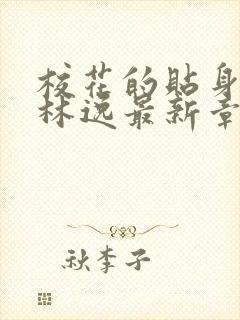 校花的貼身
林逸最新章
秋李子